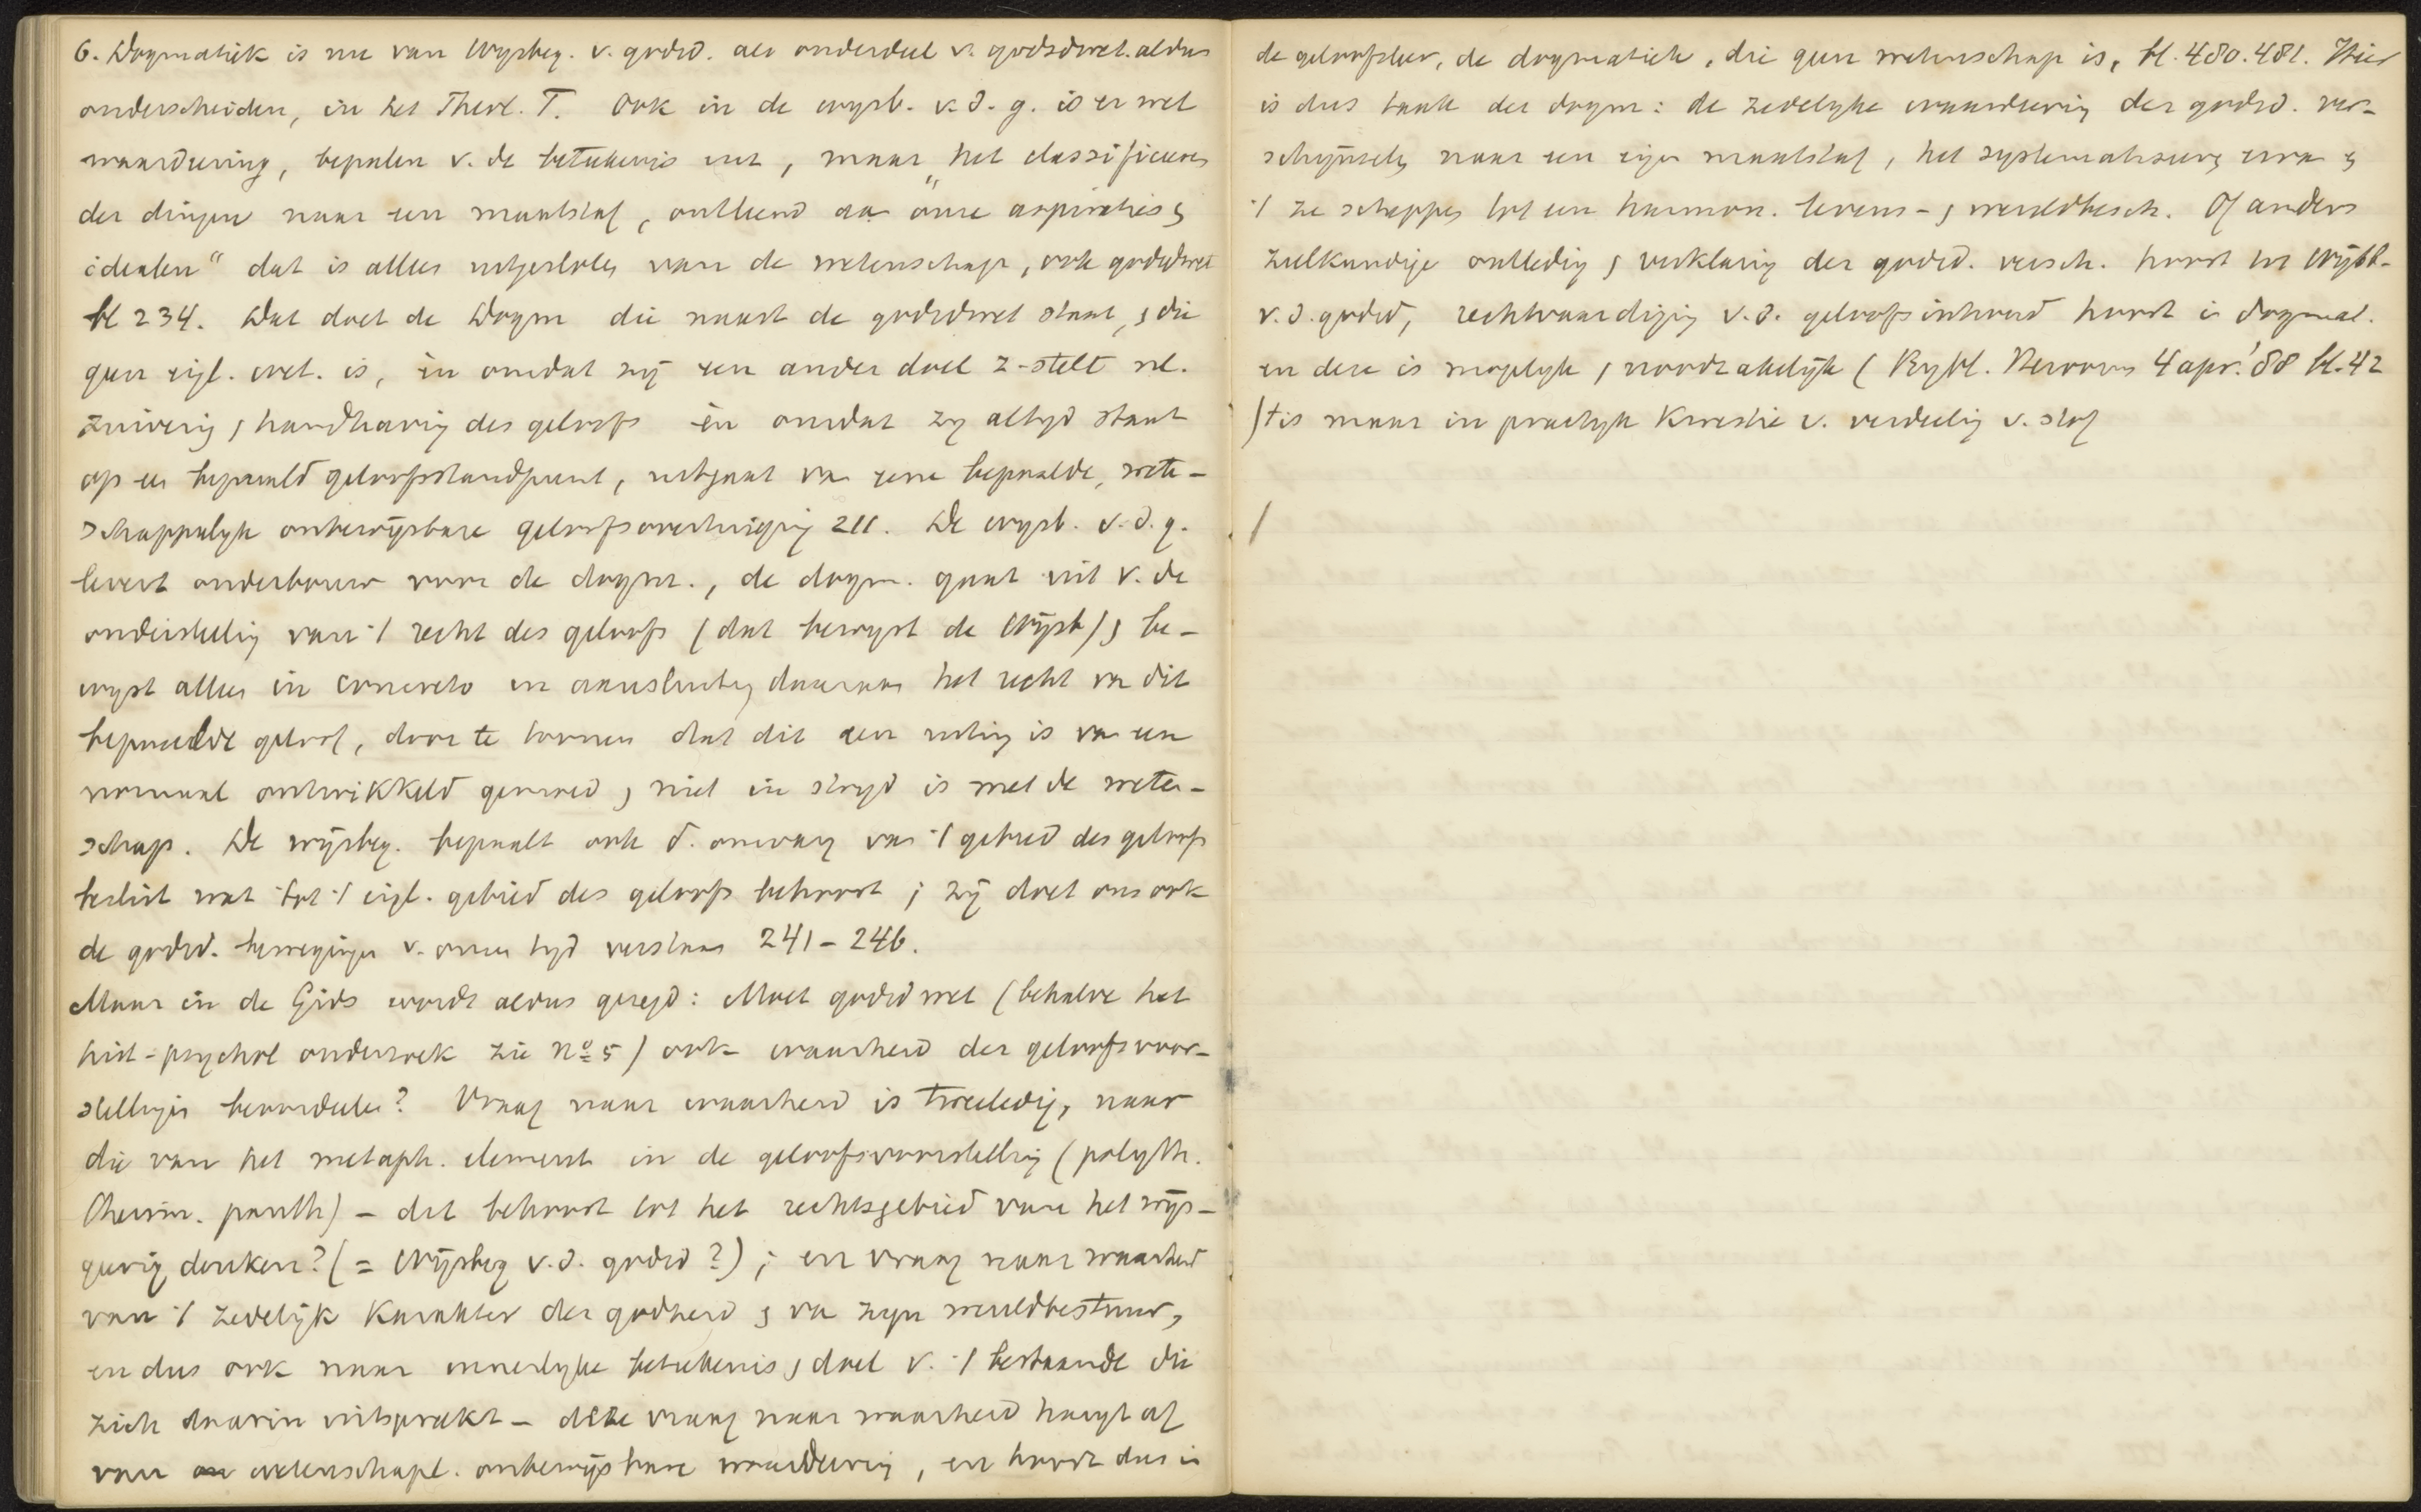 6. Dogmatiek is nu van Wysbeg. v. godsd. als onderdeel v. godsdwet. aldus
onderscheiden, in het Theol. T. Ook in de wysb. v. d. g. is er wel
waardeering, bepalen v. de beteekenis enz, maar „het classificeeren
der dingen naar een maatstaf, ontleend aan onze aspiraties en
idealen“ dat is alles uitgesloten van de wetenschap, ook godsdwet
bl 234. Dat doet de Dogm die naast de godsdwet staat, en die
geen eigl. wet. is, èn omdat zij een ander doel z-stelt nl.
zuivering en handhaving des geloofs èn omdat zy altyd staat
op een bepaald geloofsstandpunt, uitgaat van eene bepaalde, weten-
schappelyk onbewijsbare geloofsovertuiging 211. De wysb. v. d. g.
levert onderbouw voor de dogm., de dogm. gaat uit v. de
onderstelling van 't recht des geloofs (dat bewyst de Wijsb) en be-
wyst alleen in concreto in aansluiting daaraan het recht van dit
bepaalde geloof, door te toonen dat dit een uiting is van een
normaal ontwikkeld gemoed en niet in stryd is met de weten-
schap. De wijsbeg. bepaalt ook d. omvang van 't gebied des geloofs
beslist wat tot 't eigl. gebied des geloofs behoort; zij doet ons ook
de godsd. bewegingen v. onzen tyd verstaan 241-246.
Maar in de Gids wordt aldus gezegd: Moet godsdwet (behalve het
hist-psychol onderzoek zie no 5) ook waarheid der geloofsvoor-
stellingen beoordeelen? Vraag naar waarheid is tweeledig, naar
die van het metaph. element in de geloofsvoorstelling (polyth.
theism. panth) - dit behoort tot het rechtsgebied van het wijs-
geerig denken? (= Wijsbeg v. d. godsd?); en vraag naar waarheid
van 't zedelijk karakter der godheid en van zyn wereldbestuur,
en dus ook naar innerlyke beteekenis en doel v. 't bestaande die
zich daarin uitspreekt - deze vraag naar waarheid hangt af
van wetenschapl. onbewijsbare waardeering, en hoort dus in
de geloofsleer, de dogmatiek, die geen wetenschap is, bl. 480.481. Hier
is dus taak der dogm: de zedelyke waardeering der godsd. ver-
schijnselen naar een eigen maatstaf, het systematiseeren ervan en
't ze scheppen tot een harmon. levens- en wereldbesch. Of anders
zielkundige ontleding en verklaring der godsd. versch. hoort in Wijsb-
v.d. godsd, rechtvaardiging v.d. geloofsinhoud hoort in dogmat.
en deze is mogelyk en noodzakelijk (Bybl. Hervorm 4 apr. '88 bl. 42
) 't is maar in practyk kwestie v. verdeeling v. stof
/